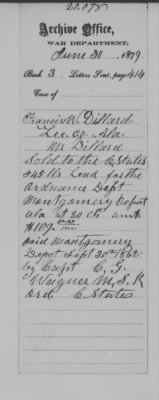 Archive Office,
WAR DEPARTMENT,
June 30, 1879
Book 3. Letters Sent, page 414
Case of
Francis W. Dillard
Lee. Co. Ala
Mr Dillard
Sold to the C States
545 lbs Lead for the
Ordnance Dept
Montgomery Depot
Ala at 20 cts amt
$109.00
said Montgomery
Depot Sept 30th 1862
by Capt C. G.
Wagner M. S. K
Ord. C States